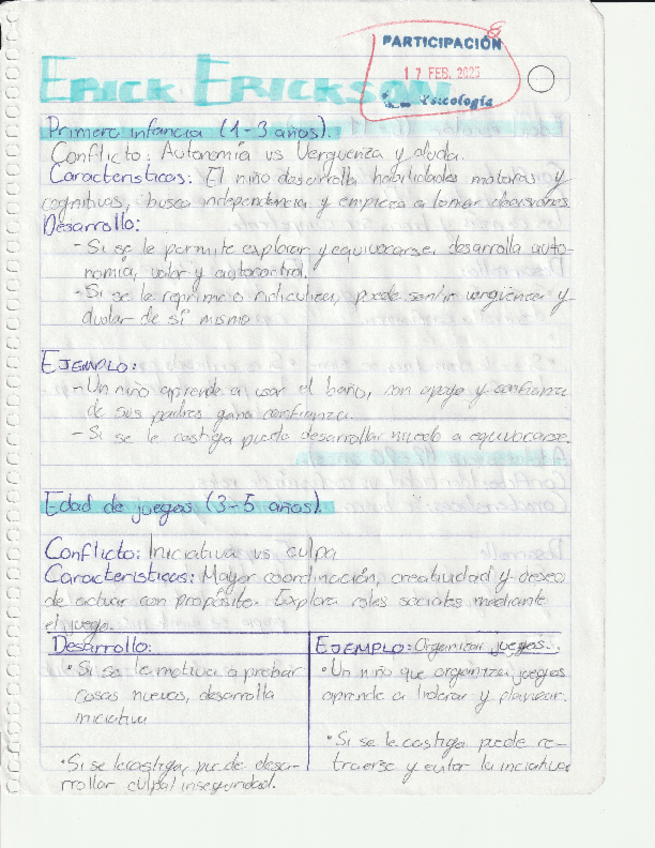 PARTICIPACIÓN
17 FEB. 2025
Psicología
ERICK ERICKSON
Primera infancia (1-3 años).
Conflicto: Autonomía vs Verguenza y duda.
Caracteristicas: El niño desarrolla habilidades motoras y
cognitivas, busca independencia y empieza a tomar decisiones
Desarrollo:
- Si se le permite explorar y equivocarse, desarrolla auto-
nomía, valor y autocontrol.
- Si se le reprime o ridiculiza, puede sentir vergüenza y
dudar de sí mismo
EJEMPLO:
- Un niño aprende a usar el baño, con apoyo y confianza
de sus padres gana confianza.
- Si se le castiga puede desarrollar miedo a equivocarse.
Edad de juegos (3-5 años).
Conflicto: Iniciativa vs culpa
Caracteristicas: Mayor coordinación, creatividad y deseo
de actuar con propósito. Explora roles sociales mediante
el juego.
Desarrollo:
• Si se le motiva a probar
cosas nuevas, desarrolla
iniciativa
• Si se le castiga, puede desa-
rrollar culpa/inseguridad.
EJEMPLO: Organizar juegos.
• Un niño que organiza juegos
aprende a liderar y planear.
• Si se le castiga puede re-
traerse y evitar la iniciativa